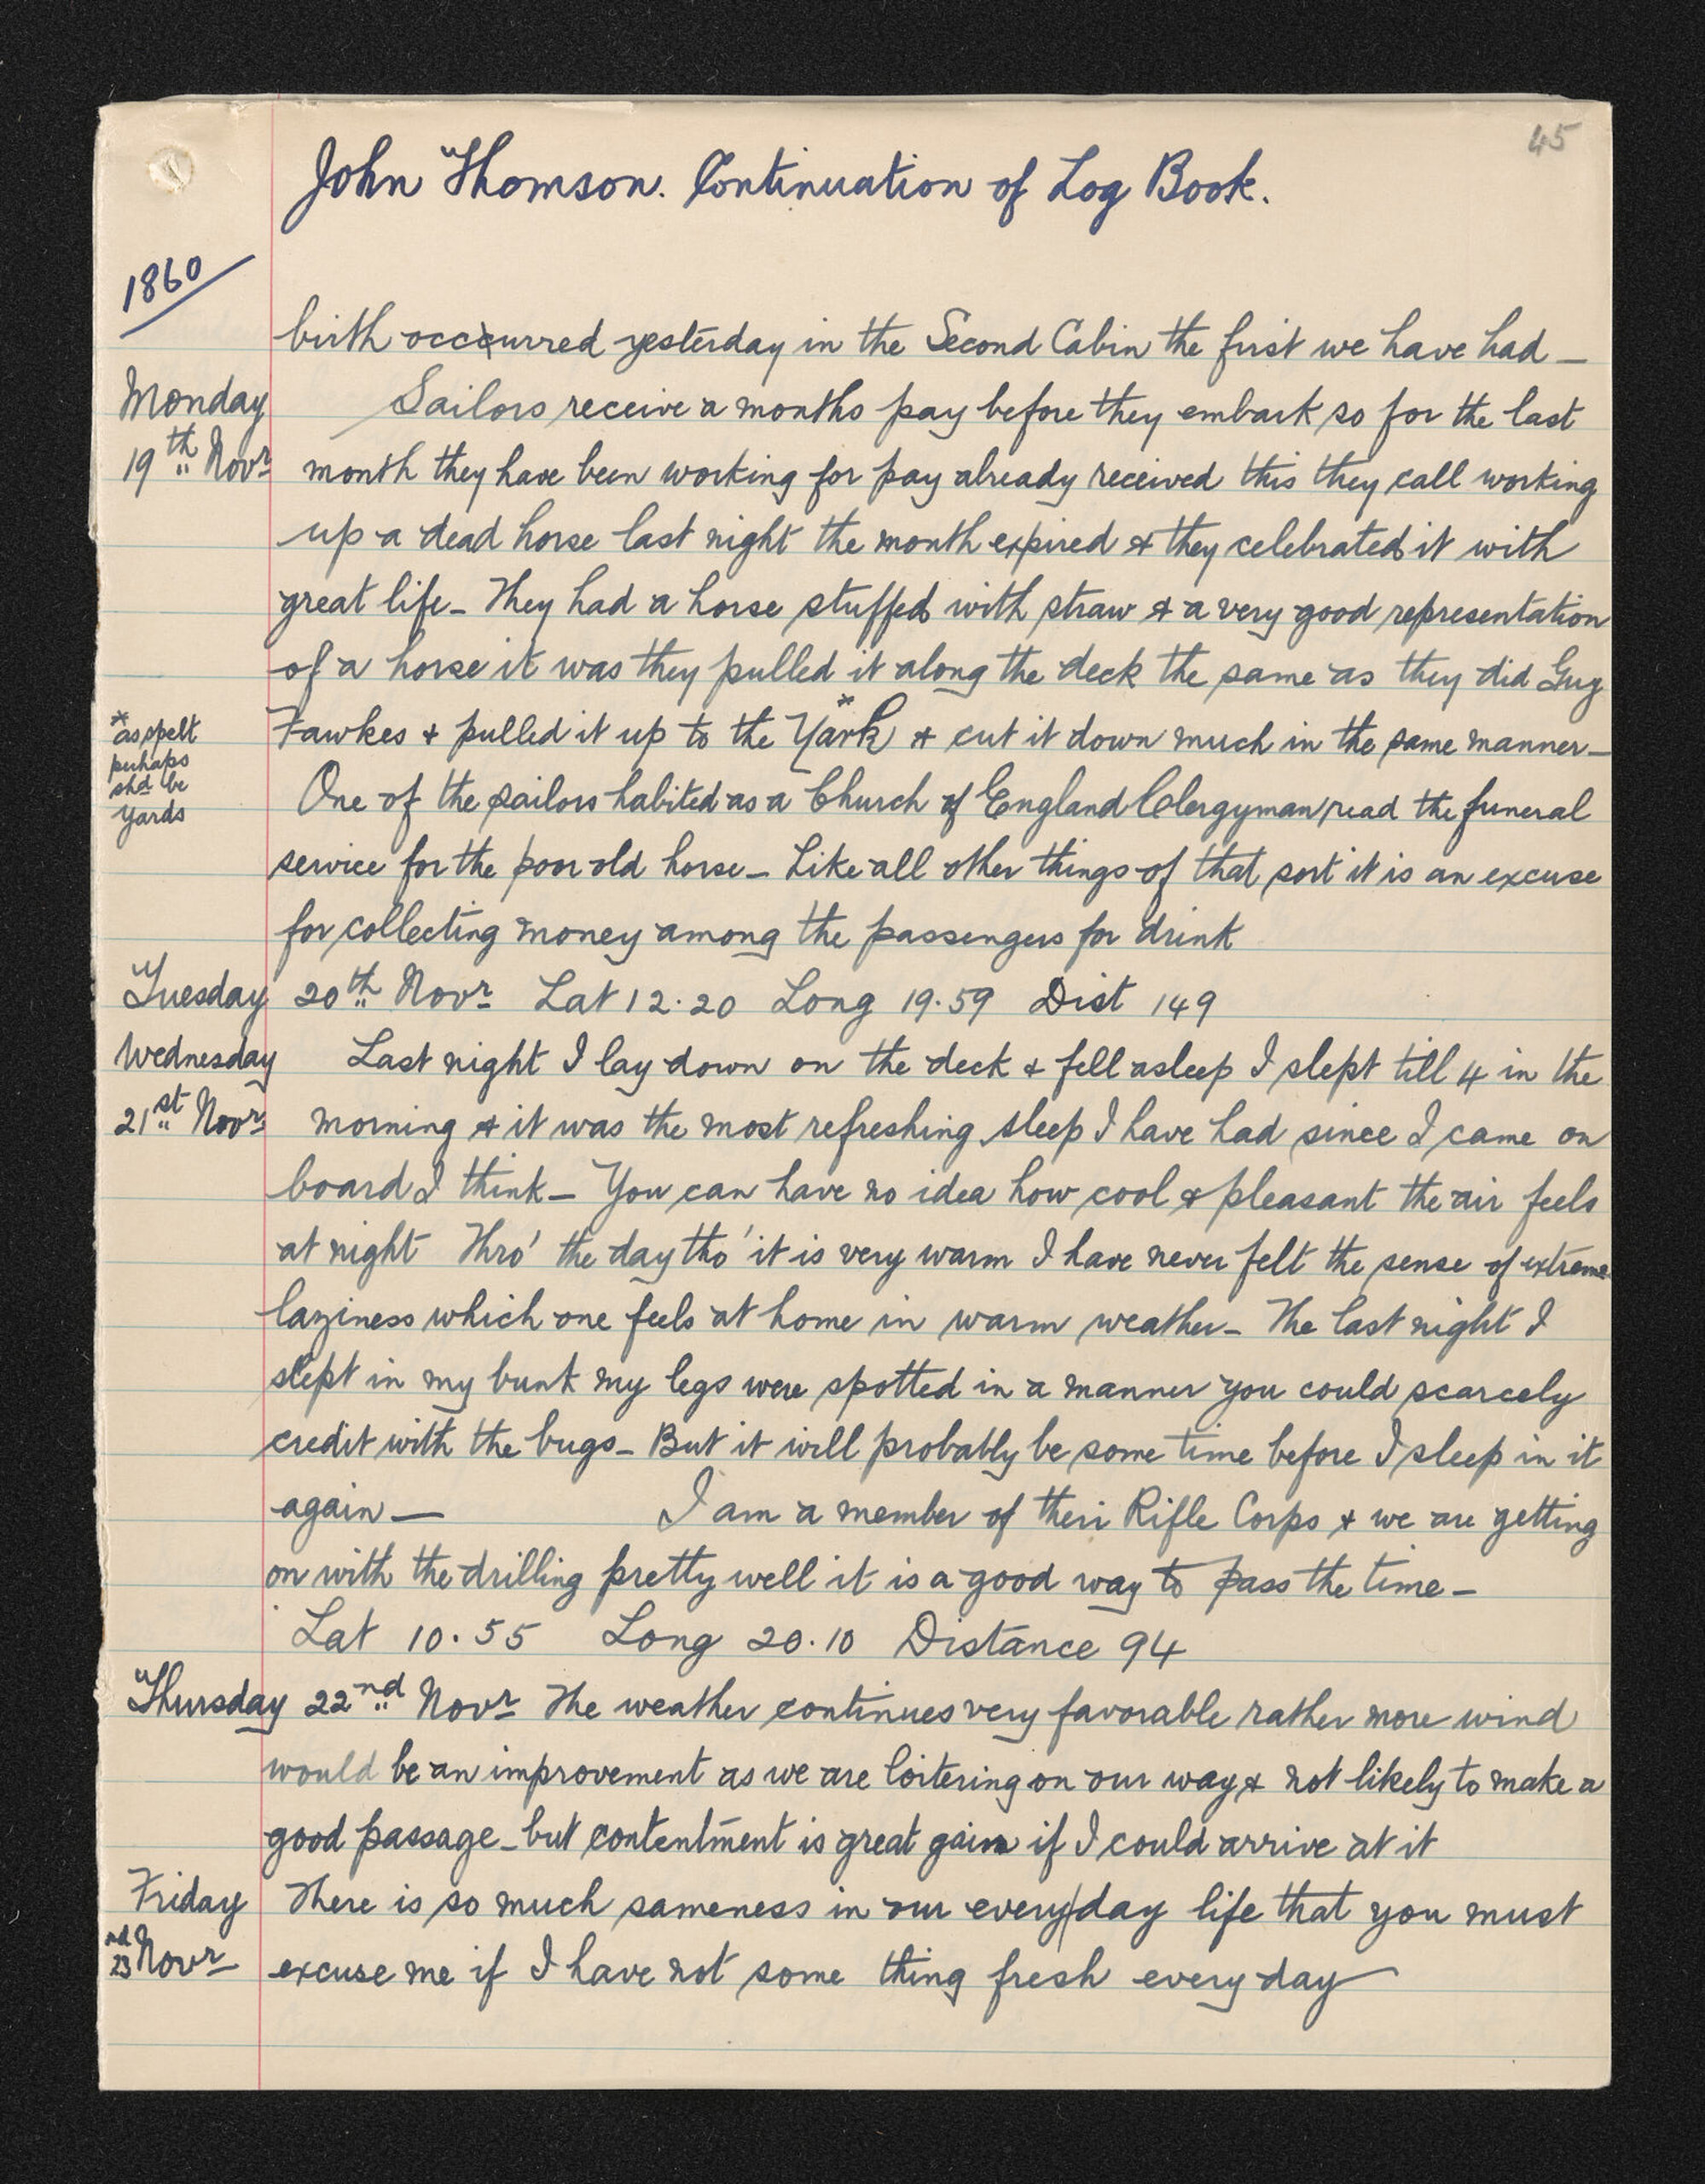 45
John Thomson. Continuation of Log Book.
1860
birth occurred yesterday in the Second Cabin the first we have had –
Monday Sailors receive a months pay before they embark so for the last
19th Novr month they have been working for pay already received this they call working
up a dead horse last night the month expired & they celebrated it with
great life – They had a horse stuffed with straw & a very good representation
of a horse it was they pulled it along the deck the same as they did Guy
Fawkes & pulled it up to the Yark* & cut it down much in the same manner –
* as spelt
perhaps
shd be
yards
One of the sailors habited as a Church of England Clergyman read the funeral
service for the poor old horse – Like all other things of that sort it is an excuse
for collecting money among the passengers for drink
Tuesday 20th Novr Lat 12.20 Long 19.59 Dist 149
Wednesday Last night I lay down on the deck & fell asleep I slept till 4 in the
21st Novr morning & it was the most refreshing sleep I have had since I came on
board I think – You can have no idea how cool & pleasant the air feels
at night Thro' the day tho' it is very warm I have never felt the sense of extreme
laziness which one feels at home in warm weather – The last night I
slept in my bunk my legs were spotted in a manner you could scarcely
credit with the bugs – But it will probably be some time before I sleep in it
again – I am a member of their Rifle Corps & we are getting
on with the drilling pretty well it is a good way to pass the time –
Lat 10.55 Long 20.10 Distance 94
Thursday 22nd Novr The weather continues very favorable rather more wind
would be an improvement as we are loitering on our way & not likely to make a
good passage – but contentment is great gain if I could arrive at it
Friday There is so much sameness in our every day life that you must
23rd Novr excuse me if I have not some thing fresh every day